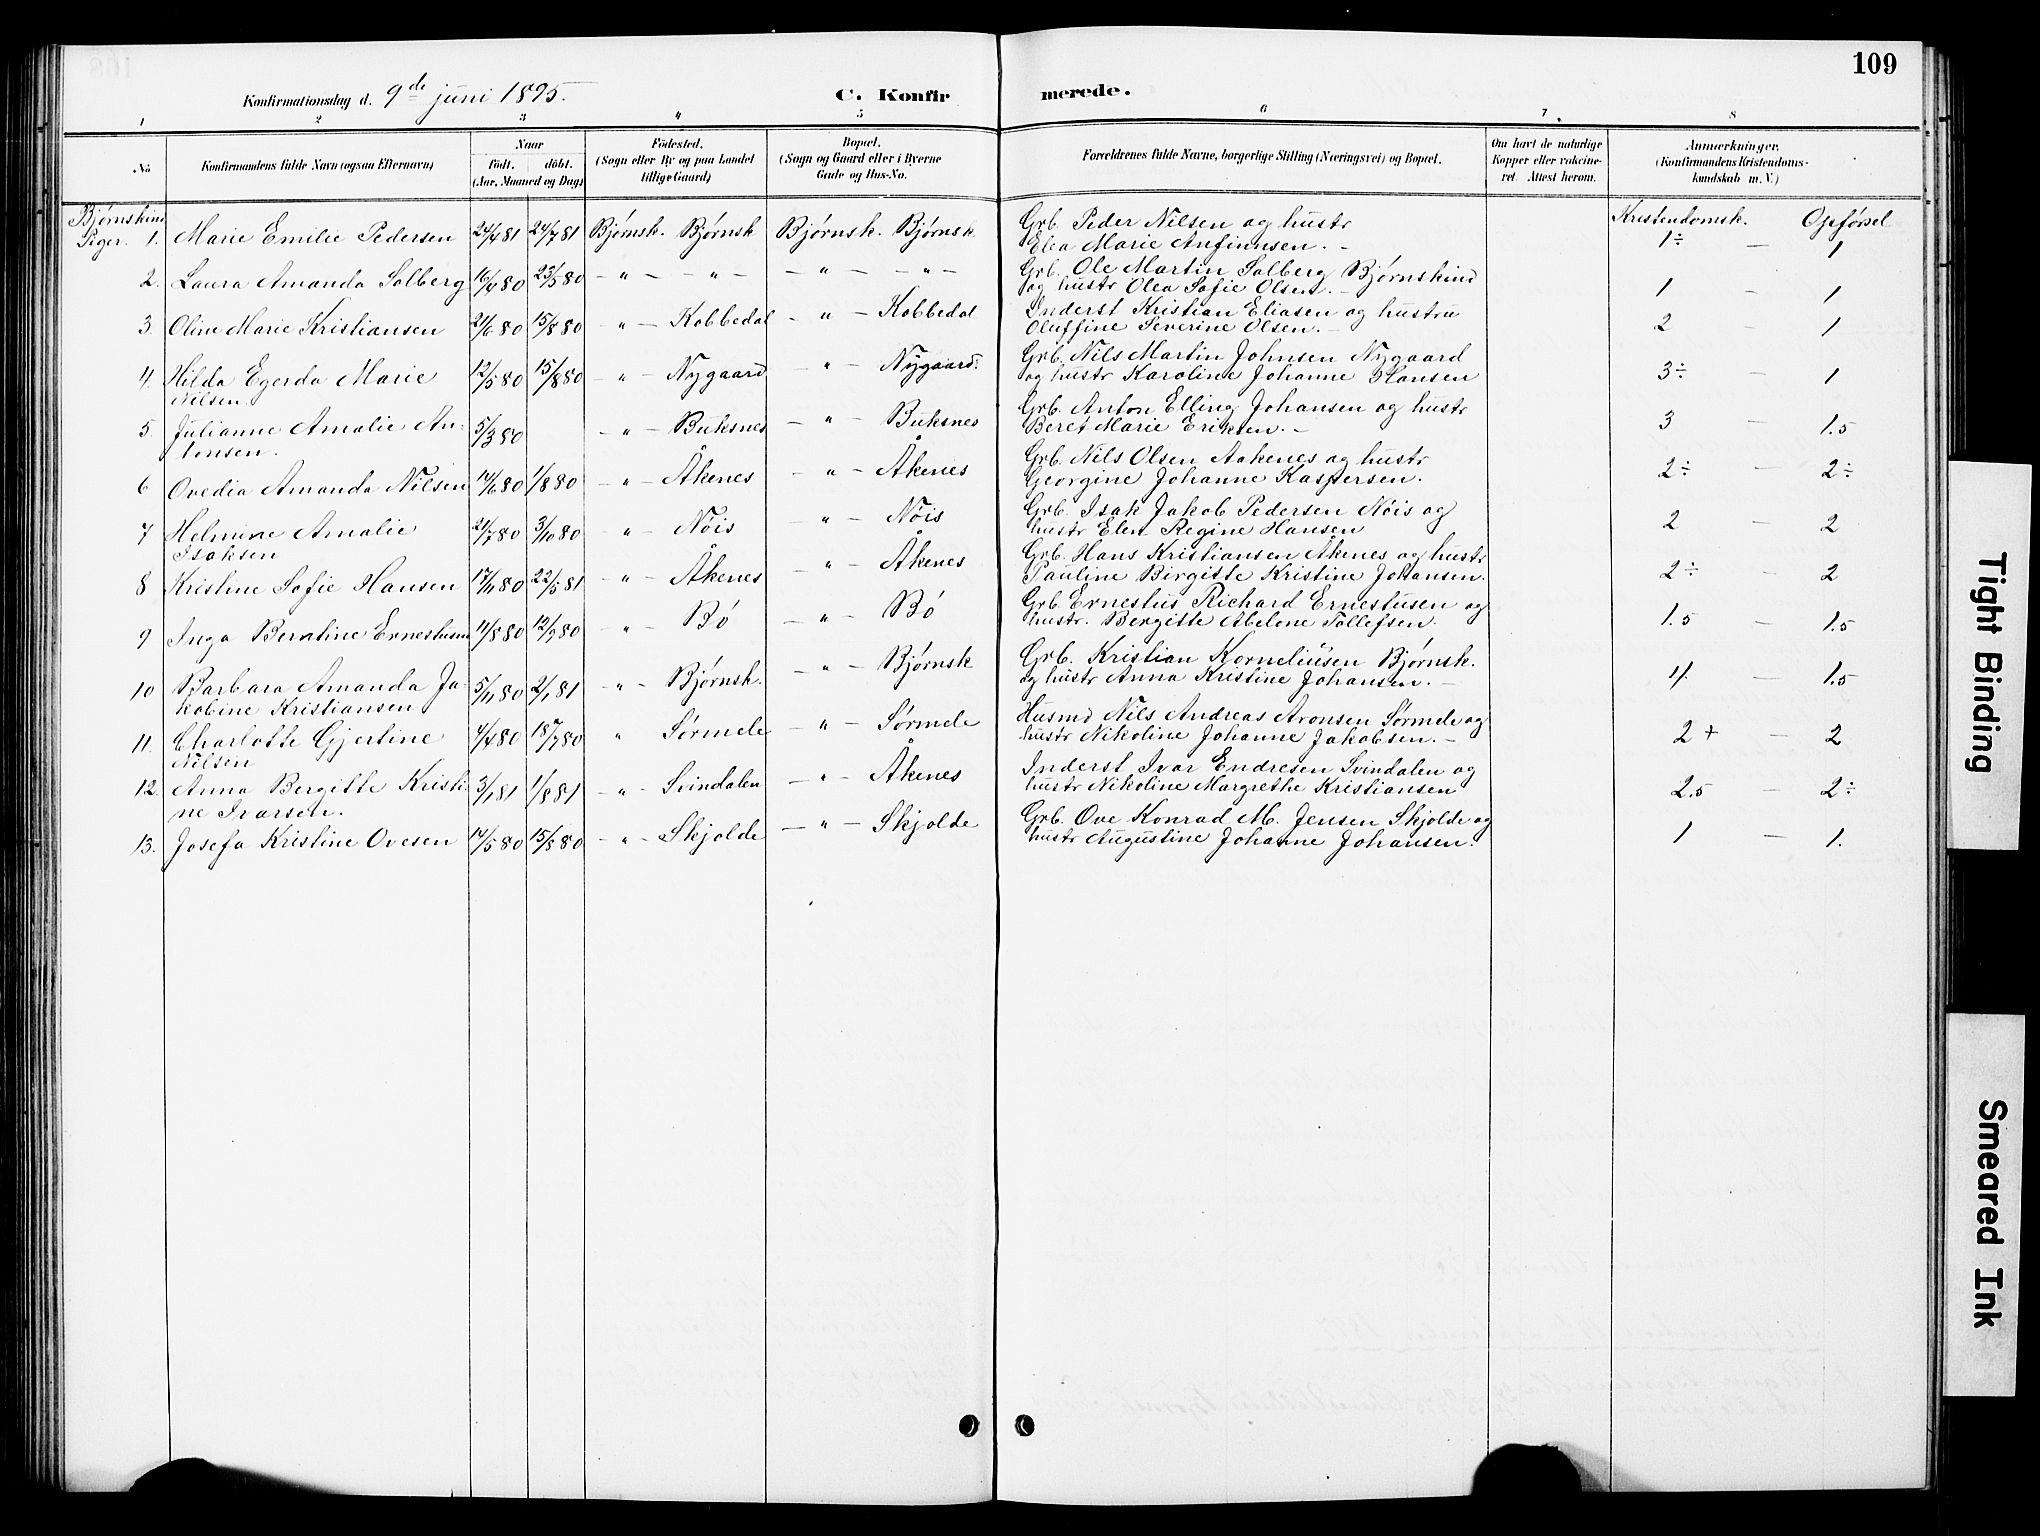 109
Konfirmationsdag d. 9de juni 1895.
C. Konfirmerede.
1 2 3 4 5 6 7. 8
No
Konfirmandens fulde Navn (ogsaa Efternavn)
Naar
födt. döbt.
(Aar, Maaned og Dag)
Födested.
(Sogn eller By og paa Landet
tillige Gaard)
Bopæl.
(Sogn og Gaard eller i Byerne
Gade og Hus-No.
Forældrenes fulde Navne, borgerlige Stilling (Næringsvei) og Bopæl.
Om havt de naturlige
Kopper eller vakcine-
ret. Attest herom.
Anmærkninger.
(Konfirmandens Kristendoms-
kundskab m. V.)
Bjørnskind
Piger.
Kristendomsk. Opførsel
1. Marie Emilie Pedersen 24/4 81 24/7 81 Bjørnsk. Bjørnsk Bjørnsk. Bjørnsk. Grb. Peder Nilsen og hustr
Elea Marie Anfinnsen. - 1÷ — 1
2. Laura Amanda Solberg 16/4 80 23/5 80 — " — — " — — " — — " — Grb. Ole Martin Solberg Bjørnskind
og hustr Olea Sofie Olsen. - 1 — 1
3. Oline Marie Kristiansen 21/6 80 15/8 80 — " — Kobbedal — " — Kobbedal Inderst Kristian Eliasen og hustru
Oluffine Severine Olsen. - 2 — 1
4. Hilda Egerda Marie 12/5 80 15/8 80 — " — Nygaard — " — Nygaard. Grb. Nils Martin Johnsen Nygaard
Nilsen. og hustr Karoline Johanne Hansen 3÷ — 1
5. Julianne Amalie An- 5/3 80 — " — Buksnes — " — Buksnes Grb. Anton Elling Johansen og hustr
tonsen. Beret Marie Eriksen. - 3 — 1.5
6 Ovedia Amanda Nilsen 14/6 80 1/8 80 — " — Åkenes — " — Åkenes Grb. Nils Olsen Aakenes og hustr
Georgine Johanne Kaspersen. 2÷ — 2÷
7 Helmine Amalie 21/7 80 3/10 80 — " — Nöis — " — Nöis Grb. Isak Jakob Pedersen Nöis og
Isaksen hustr Elen Regine Hansen 2 — 2
8 Kristine Sofie Hansen 17/11 80 22/5 81 — " — Åkenes — " — Åkenes Grb. Hans Kristiansen Åkenes og hustr
Pauline Birgitte Kristine Johansen. 2÷ — 2
9 Inga Berntine Ernestusen 11/8 80 12/9 80 — " — Bö — " — Bö Grb. Ernestus Richard Ernestusen og
hustr. Bergitte Abelone Tollefsen. 1.5 — 1.5
10 Barbara Amanda Ja- 5/11 80 2/1 81 — " — Bjørnsk. — " — Bjørnsk Grb. Kristian Korneliusen Bjørnsk.
kobine Kristiansen og hustr Anna Kristine Johansen. - 4. — 1.5
11. Charlotte Gjertine 4/4 80 18/7 80 " Sørmele — " — Sørmele Husmd Nils Andreas Aronsen Sørmele og
Nilsen hustr Nikoline Johanne Jakobsen. - 2+ — 2
12. Anna Bergitte Kristi- 3/1 81 1/8 81 — " — Svindalen — " — Åkenes Inderst Ivar Endresen Svindalen og
ne Ivarsen. hustr Nikoline Margrethe Kristiansen 2.5 — 2÷
13. Josefa Kristine Ovesen 14/5 80 15/8 80 — " — Skjolde — " — Skjolde Grb. Ove Konrad M. Jensen Skjolde og
hustr Augustine Johanne Johansen. 1 — 1.
Tight Binding
Smeared Ink